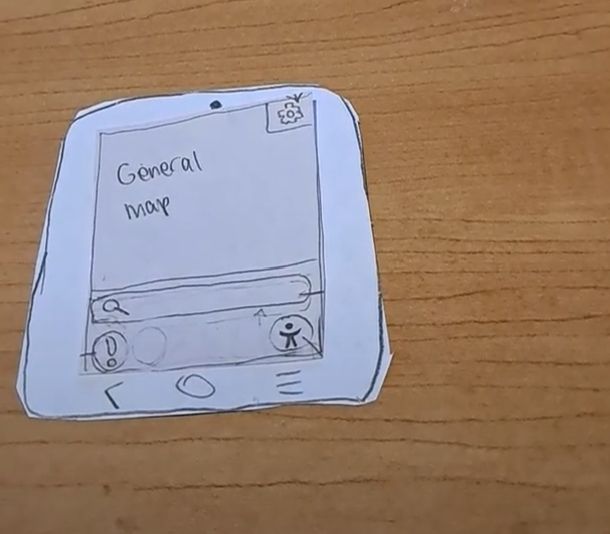 General
map
?